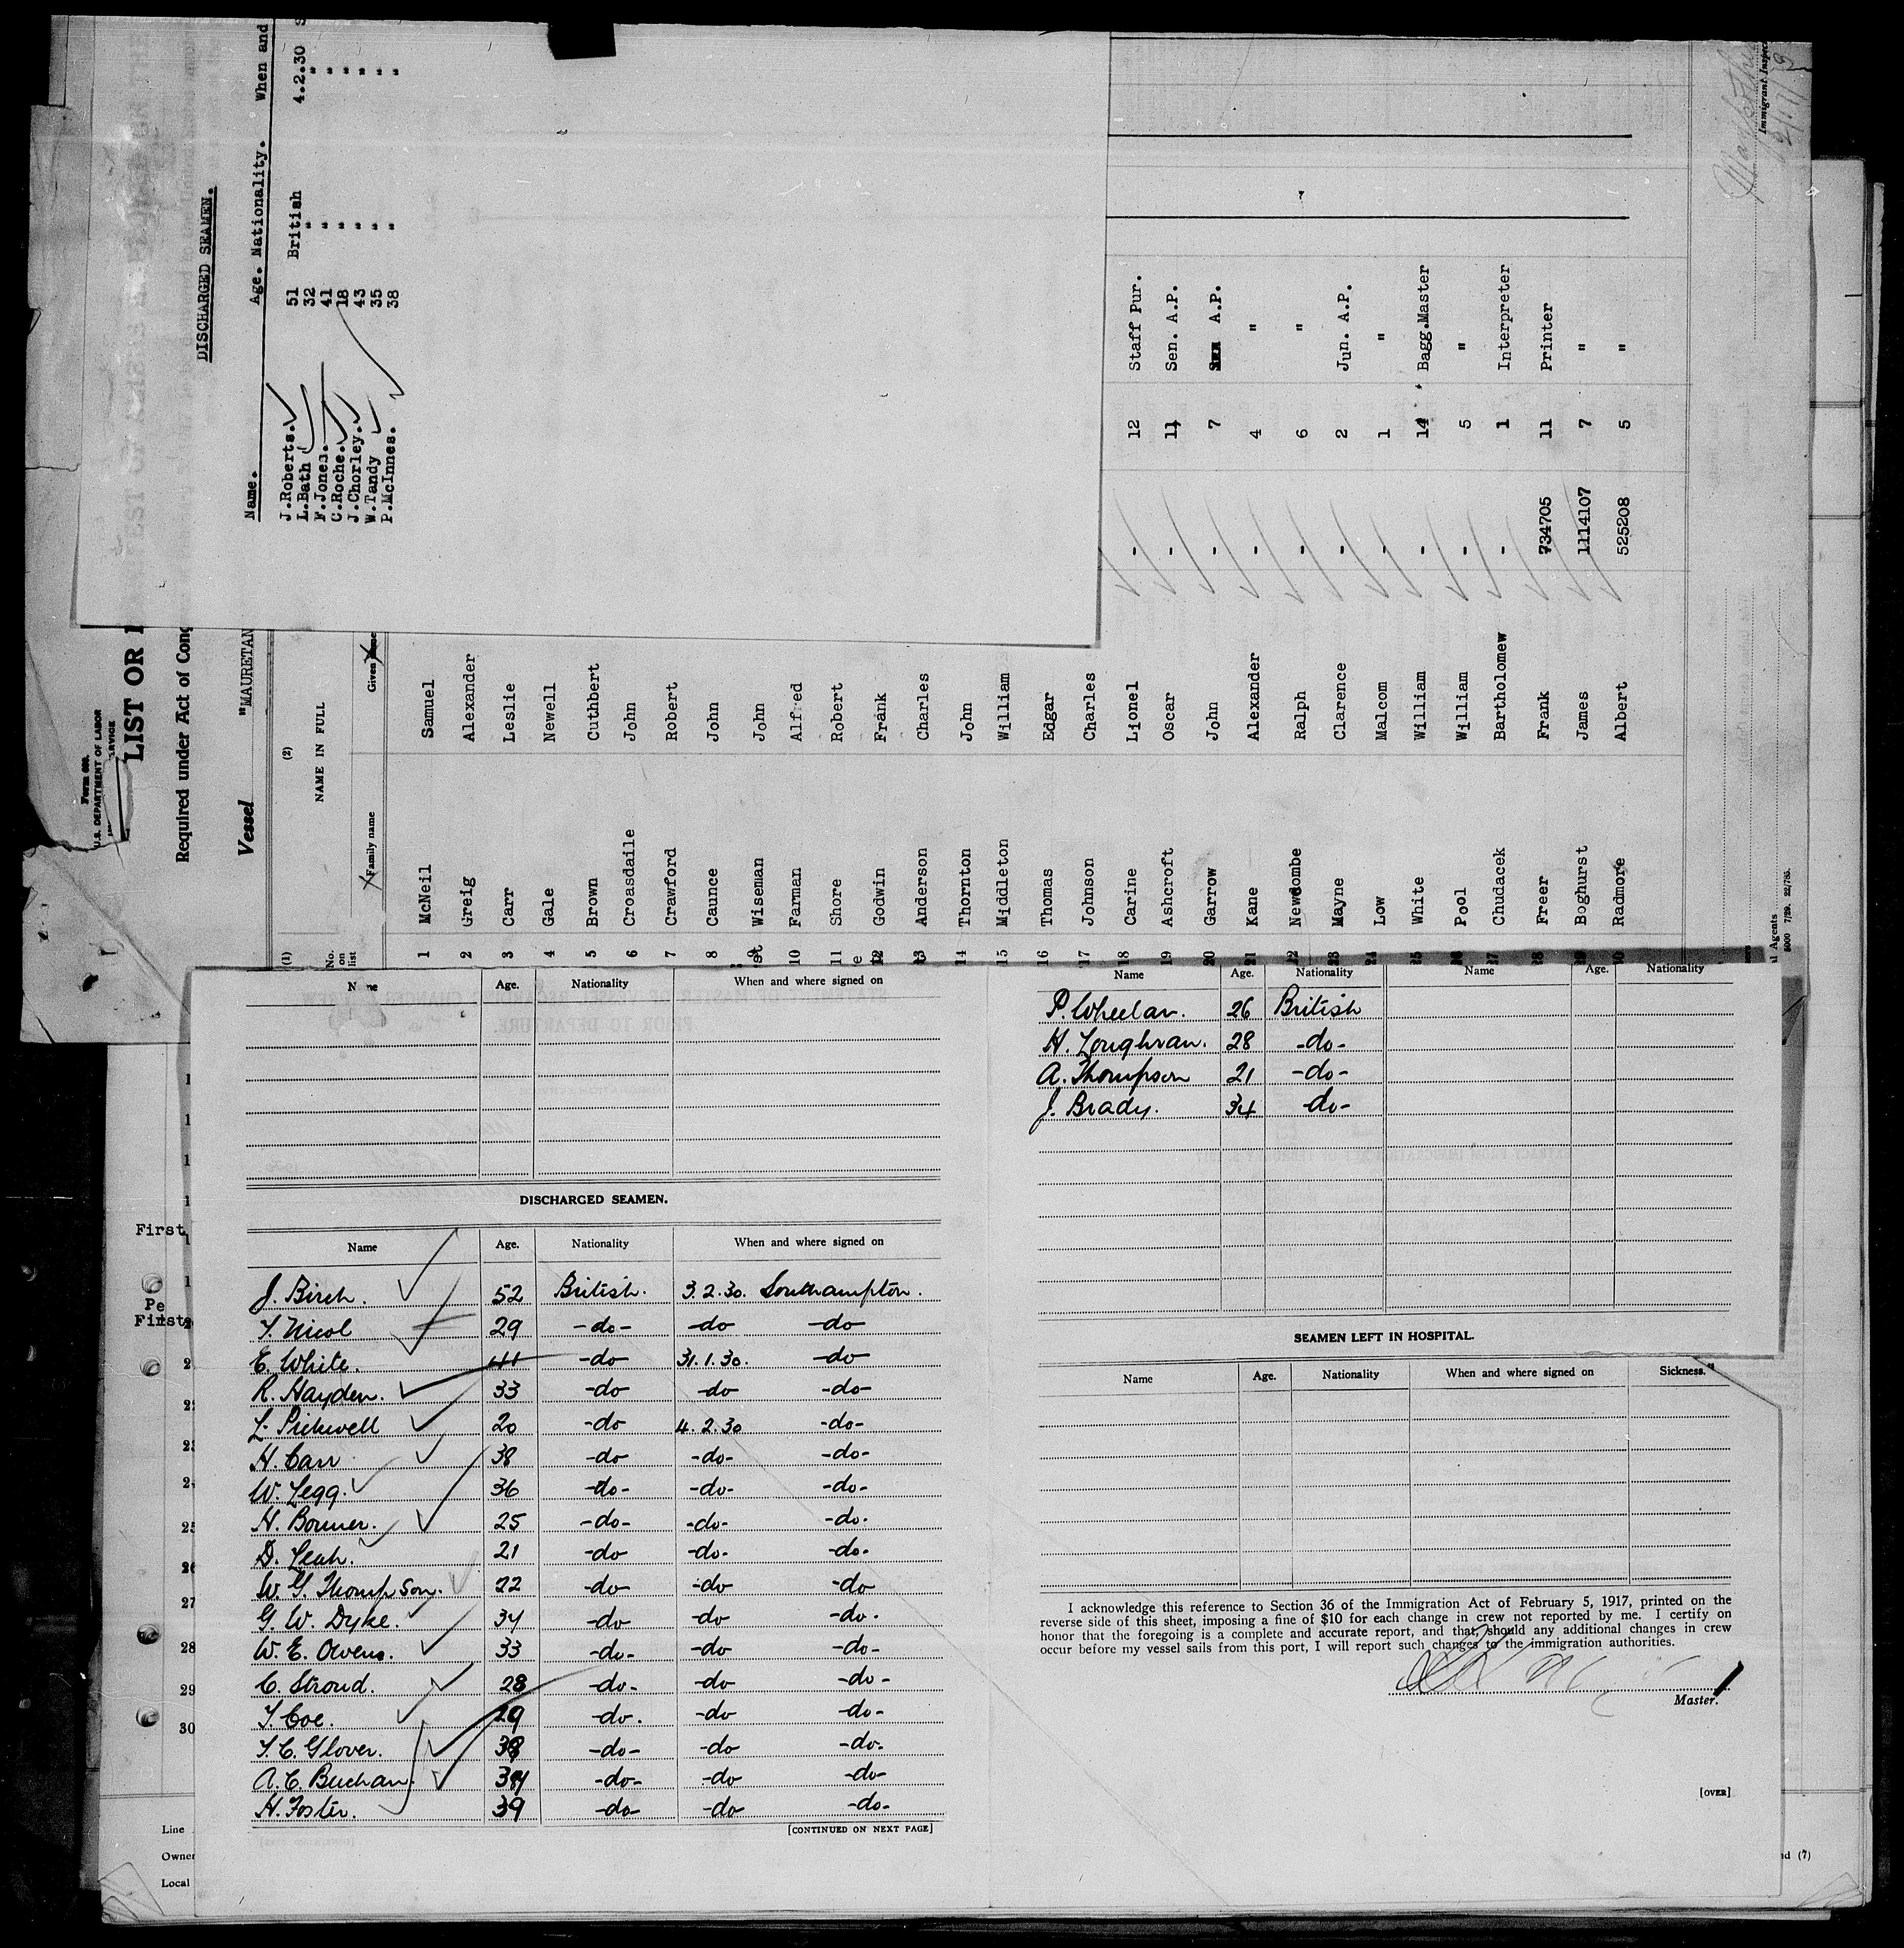 DISCHARGED SEAMEN.
Name. Age. Nationality. When and
J.Roberts. 51 British 4.2.30
L.Bath 32 " "
F.Jones. 41 " "
C.Roche. 18 " "
J.Chorley. 43 " "
W.Tandy 35 " "
P.McInnes. 38 " "
Form 689.
U.S. DEPARTMENT OF LABOR
LIST OR
Required under Act of Cong
Vessel "MAURETAN
(1) (2)
No. on list NAME IN FULL
Family name Given
1 McNeil Samuel
2 Greig Alexander
3 Carr Leslie
4 Gale Newell
5 Brown Cuthbert
6 Croasdaile John
7 Crawford Robert
8 Caunce John
9 Wiseman John
10 Farman Alfred
11 Shore Robert
12 Godwin Frank
13 Anderson Charles
14 Thornton John
15 Middleton William
16 Thomas Edgar
17 Johnson Charles
18 Carine Lionel - 12 Staff Pur.
19 Ashcroft Oscar - 11 Sen. A.P.
20 Garrow John - 7 A.P.
21 Kane Alexander - 4 "
22 Newcombe Ralph - 6 "
23 Mayne Clarence - 2 Jun. A.P.
24 Low Malcom - 1 "
25 White William - 14 Bagg.Master
26 Pool William - 5 "
27 Chudacek Bartholomew - 1 Interpreter
28 Freer Frank 734705 11 Printer
29 Boghurst James 1114107 7 "
30 Radmore Albert 525208 5 "
Immigrant Inspec
Agents
5000 7/29. 22/785.
Name Age. Nationality When and where signed on
DISCHARGED SEAMEN.
Name Age. Nationality When and where signed on
J. Birch. 52 British. 3.2.30. Southampton.
T. Nicol 29 -do- -do -do
E. White. 41 -do 31.1.30. -do
R. Hayden. 33 -do -do -do-
L. Pickwell 20 -do 4.2.30 -do-
H. Carr 38 -do -do- -do-
W. Legg. 36 -do- -do- -do-
H. Bonner. 25 -do- -do- -do.
D. Leah. 21 -do -do- -do.
W. G. Thompson. 22 -do -do -do
G. W. Dyke. 34 -do -do -do.
W. E. Owens. 33 -do- -do -do-
C. Stroud. 28 -do- -do -do-
T. Coe. 29 -do. -do -do-
T. C. Glover. 38 -do- -do -do.
A. C. Buchan. 34 -do- -do -do-
H. Foster. 39 -do- -do -do-
[CONTINUED ON NEXT PAGE]
Name Age. Nationality Name Age. Nationality
P. Wheelan. 26 British
H. Loughran. 28 -do-
A. Thompson 21 -do-
J. Brady. 34 -do-
SEAMEN LEFT IN HOSPITAL.
Name Age. Nationality When and where signed on Sickness.
I acknowledge this reference to Section 36 of the Immigration Act of February 5, 1917, printed on the
reverse side of this sheet, imposing a fine of $10 for each change in crew not reported by me. I certify on
honor that the foregoing is a complete and accurate report, and that, should any additional changes in crew
occur before my vessel sails from this port, I will report such changes to the immigration authorities.
Master.
[OVER]
First
Pe
First
25
26
27
28
29
30
Line
Owner
Local
nd (7)